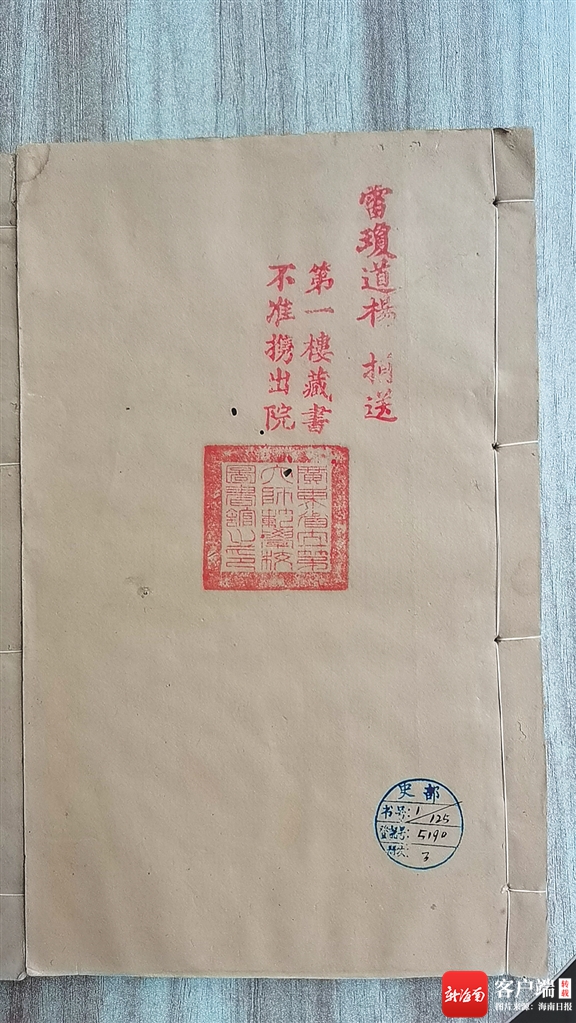 雷瓊道楊 捐送
第一樓藏書
不准携出院
廣東省立第
六師範學校
圖書館之印
史部
书号: 1/125
登记号: 5190
册次: 3
新海南
客户端
转载
图片来源：海南日报